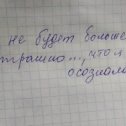 не будет больше
страшно..., что я
осознала